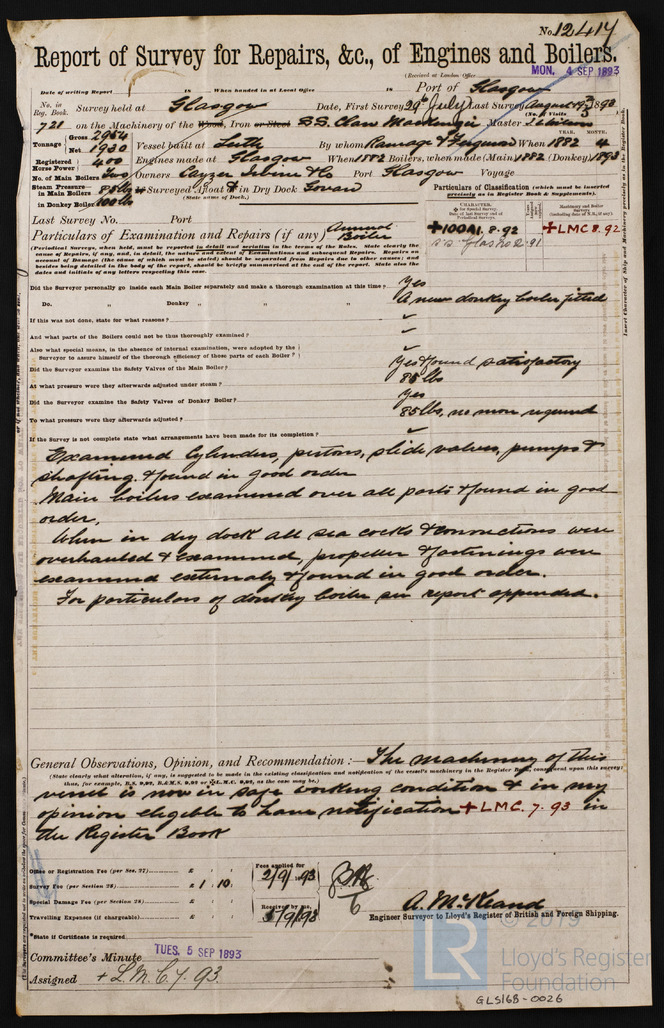 No. 12414
Report of Survey for Repairs, &c., of Engines and Boilers.
(Received at London Office MON. 4 SEP 1893
Date of writing Report 18 When handed in at Local Office 18 Port of Glasgow
No. in Reg. Book. Survey held at Glasgow Date, First Survey 29th July Last Survey August 1893
(No. of Visits 3)
720 on the Machinery of the Wood, Iron or Steel S.S. Clan Mackenzie Master
Tonnage Gross 2954 Vessel built at Leith By whom Ramage & Ferguson When 1882 YEAR. MONTH. 4
Net 1930
Registered Horse Power 400 Engines made at Glasgow When 1882 Boilers, when made (Main) 1882 (Donkey) 1893
No. of Main Boilers Two Owners Cayzer Irvine & Co Port Glasgow Voyage
Steam Pressure in Main Boilers 85 lbs If Surveyed Afloat or in Dry Dock Govan
(State name of Dock.)
in Donkey Boiler 100 lbs
Particulars of Classification (which must be inserted precisely as in Register Book & Supplements).
CHARACTER.
Machinery and Boiler Surveys
+100A1. 8.92
s.s. Glas No 2. 91
+LMC 8.92
Last Survey No. Port
Particulars of Examination and Repairs (if any) Annual Boiler
(Periodical Surveys, when held, must be reported in detail and seriatim in the terms of the Rules. State clearly the
cause of Repairs, if any, and, in detail, the nature and extent of Examinations and subsequent Repairs. Repairs on
account of Damage (the cause of which must be stated) should be separated from Repairs due to other causes; and
besides being detailed in the body of the report, should be briefly summarised at the end of the report. State also the
dates and initials of any letters respecting this case.
Did the Surveyor personally go inside each Main Boiler separately and make a thorough examination at this time? Yes
Do. „ Donkey „ „ „ A new donkey boiler fitted
If this was not done, state for what reasons?
And what parts of the Boilers could not be thoroughly examined?
Also what special means, in the absence of internal examination, were adopted by the
Surveyor to assure himself of the thorough efficiency of those parts of each Boiler?
Did the Surveyor examine the Safety Valves of the Main Boiler? Yes & found satisfactory
At what pressure were they afterwards adjusted under steam? 85 lbs
Did the Surveyor examine the Safety Valves of Donkey Boiler? Yes
To what pressure were they afterwards adjusted? 85 lbs, no more required
If the Survey is not complete state what arrangements have been made for its completion?
Examined Cylinders, pistons, slide valves, pumps &
shafting & found in good order
Main boilers examined over all parts & found in good
order.
When in dry dock all sea cocks & connections were
overhauled & examined, propeller & fastenings were
examined externaly & found in good order.
For particulars of donkey boiler see report appended.
General Observations, Opinion, and Recommendation:— The machinery of this
(State clearly what alteration, if any, is suggested to be made in the existing classification and notification of the vessel's machinery in the Register Book, consequent upon this survey;
thus, for example, B.S. 9,93, B.&M.S. 9,93 or +L.M.C. 9,93, as the case may be.)
vessel is now in safe working condition & in my
opinion eligible to have notification +LMC. 7. 93 in
the Register Book
Office or Registration Fee (per Sec. 27) £
Survey Fee (per Section 28) £ 1. 10.
Special Damage Fee (per Section 28) £
Travelling Expenses (if chargeable) £
Fees applied for 2/9/1893
Received by me, 5/9/1893
A. McKeand
Engineer Surveyor to Lloyd's Register of British and Foreign Shipping.
*State if Certificate is required
Committee's Minute TUES. 5 SEP 1893
Assigned + L.M.C. 7. 93
© 2019
LR
Lloyd's Register
Foundation
GLS168-0026